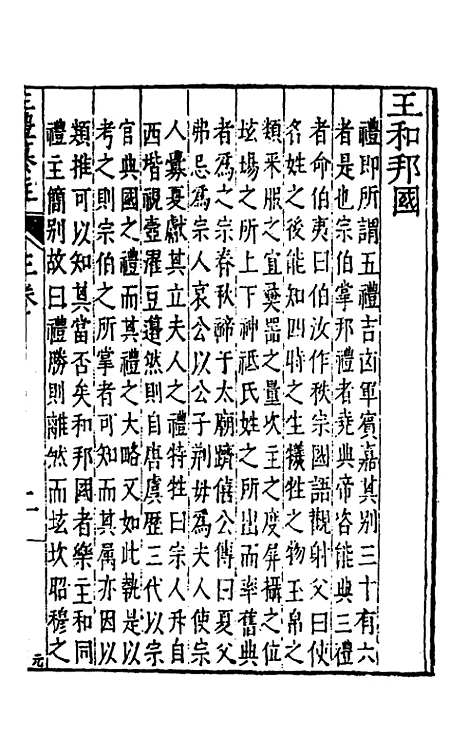 王和邦國
禮即所謂五禮吉凶軍賓嘉其別三十有六
者是也宗伯掌邦禮者堯典帝咨能典三禮
者命伯夷曰伯汝作秩宗國語觀射父曰使
名姓之後能知四時之生犧牲之物玉帛之
類采服之宜彝器之量次主之度屏攝之位
壇場之所上下神祗氏姓之所出而率舊典
者為之宗春秋禘于太廟躋僖公傳曰夏父
弗忌為宗人哀公以公子荆母為夫人使宗
人釁夏獻其立夫人之禮特牲曰宗人升自
西堦視壺濯豆籩然則自唐虞歷三代以宗
官典國之禮而其禮之大略又如此執是以
考之則宗伯之所掌者可知而其屬亦因以
類推可以知其當否矣和邦國者樂主和同
禮主簡別故曰禮勝則離然而坎昭穆之
二
元